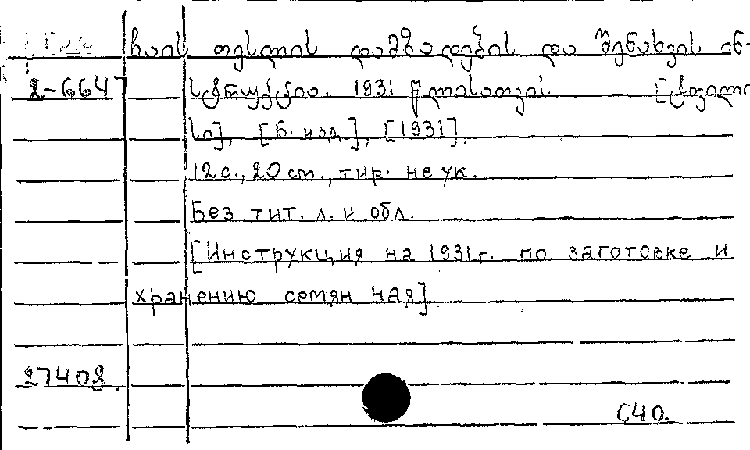 ჩაის თესლის დამზადების და შენახვის ინ-
2-6647 სტრუქცია. 1931 წლისათვის.
[Б. изд.], [1931].
12 с., 20 cm., тир. не ук.
Без тит. л. и обл.
[Инструкция на 1931 г. по заготовке и
хранению семян чая]
27402.
640.